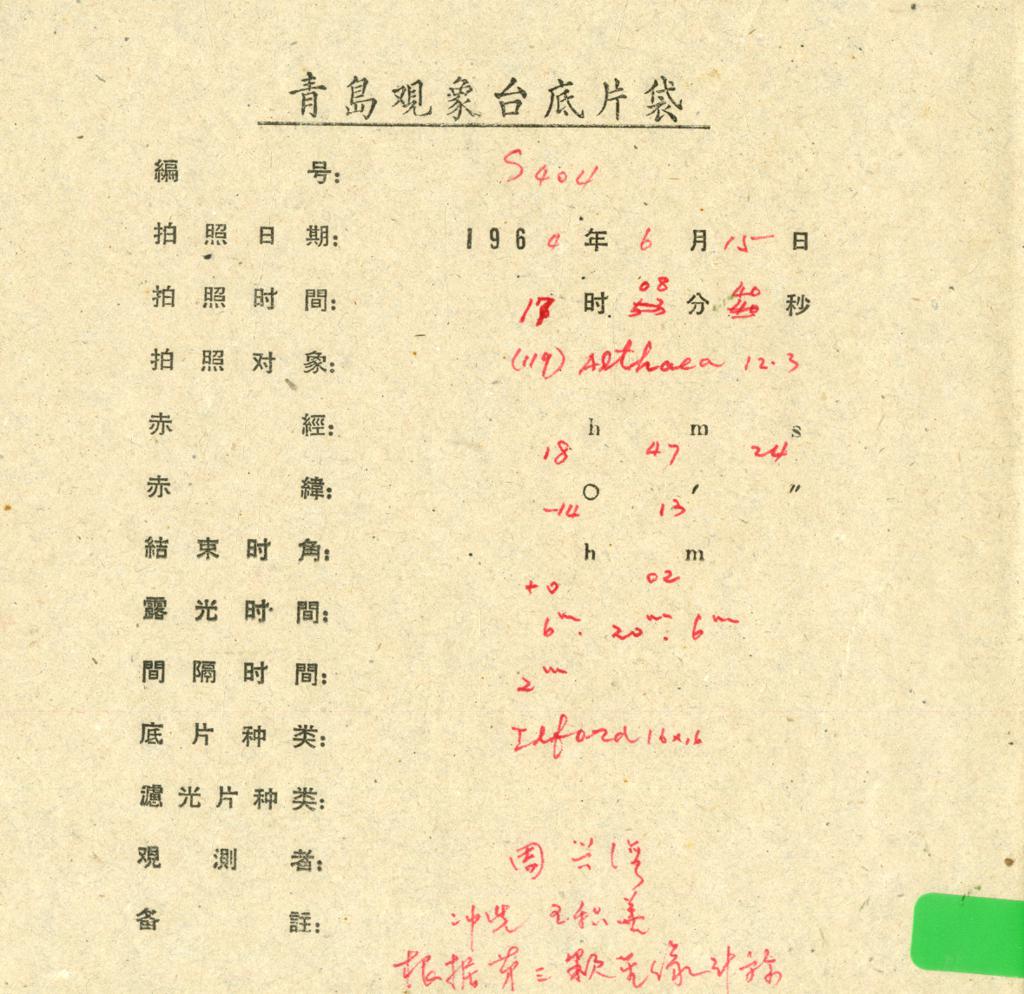 青島观象台底片袋
編号: S404
拍照日期: 1964年6月15日
拍照时間: 17时 08 53分 40 40秒
拍照对象: (119) Althaea 12.3
赤經: 18h 47m 24s
赤緯: -14° 13′ ″
結束时角: +0h 02m
露光时間: 6m. 20m. 6m
間隔时間: 2m
底片种类: Ilford 16x16
濾光片种类:
观測者: 周兴
备註: 冲洗 王积美
根据第三颗星像计标